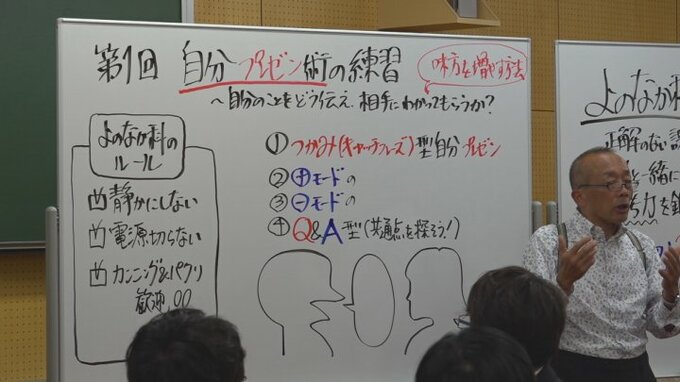 第1回 自分プレゼン術の練習
味方を増やす方法
〜自分のことをどう伝え、相手にわかってもらうか？
よのなか科の
ルール
静かにしない
電源切らない
カンニング&パクリ
歓迎!!
① つかみ(キャッチフレーズ)型自分プレゼン
② ⊕モードの
③ ⊖モードの
④ Q&A型(共通点を探そう!)
よのなか科
正解のない
一緒に
力を